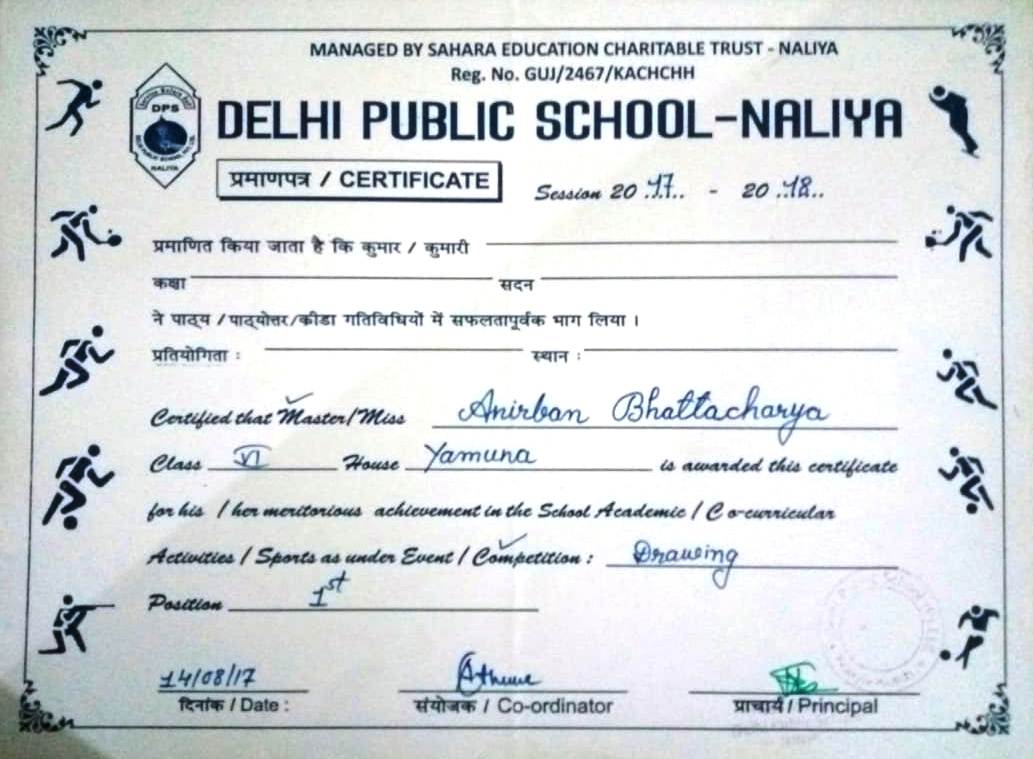 MANAGED BY SAHARA EDUCATION CHARITABLE TRUST - NALIYA
Reg. No. GUJ/2467/KACHCHH
DPS
NALIYA
DELHI PUBLIC SCHOOL-NALIYA
प्रमाणपत्र / CERTIFICATE
Session 20 17.. - 20 18..
प्रमाणित किया जाता है कि कुमार / कुमारी
कक्षा सदन
ने पाठ्य / पाठ्योत्तर/क्रीडा गतिविधियों में सफलतापूर्वक भाग लिया ।
प्रतियोगिता : स्थान :
Certified that Master/Miss Anirban Bhattacharya
Class VI House Yamuna is awarded this certificate
for his / her meritorious achievement in the School Academic / Co-curricular
Activities / Sports as under Event / Competition : Drawing
Position 1st
14/08/17
दिनांक / Date : संयोजक / Co-ordinator प्राचार्य / Principal